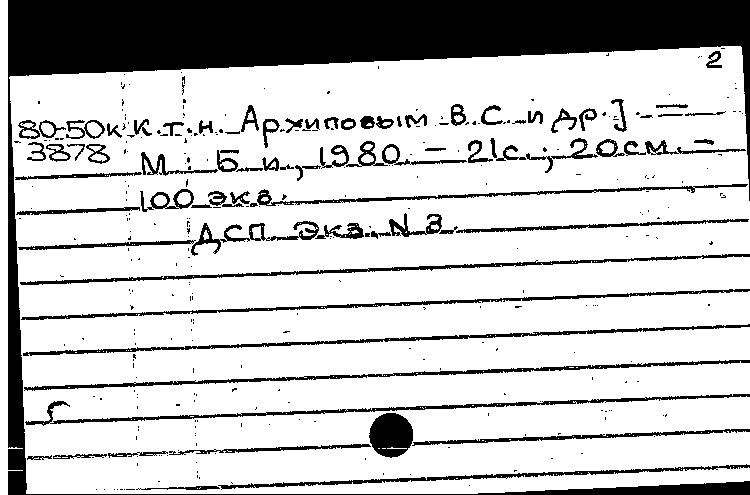 2
80-50к к.т.н. Архиповым В.С. и др.]. —
3878 М.: Б.и., 1980. – 21с.; 20см. –
100 экз.
ДСП Экз. N 3.